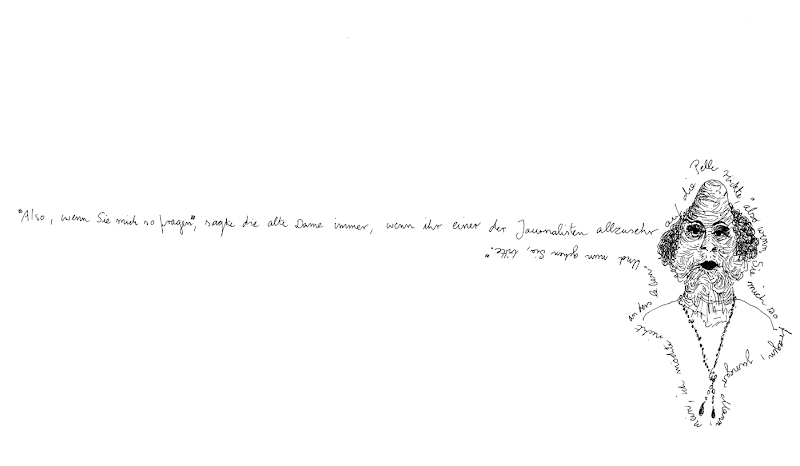 "Also, wenn Sie mich so fragen", sagte die alte Dame immer, wenn ihr einer der Journalisten allzusehr auf die Pelle rückte "also wenn Sie mich so fragen, junger Mann, nein, ich möchte nicht anders leben. Und nun gehen Sie, bitte."